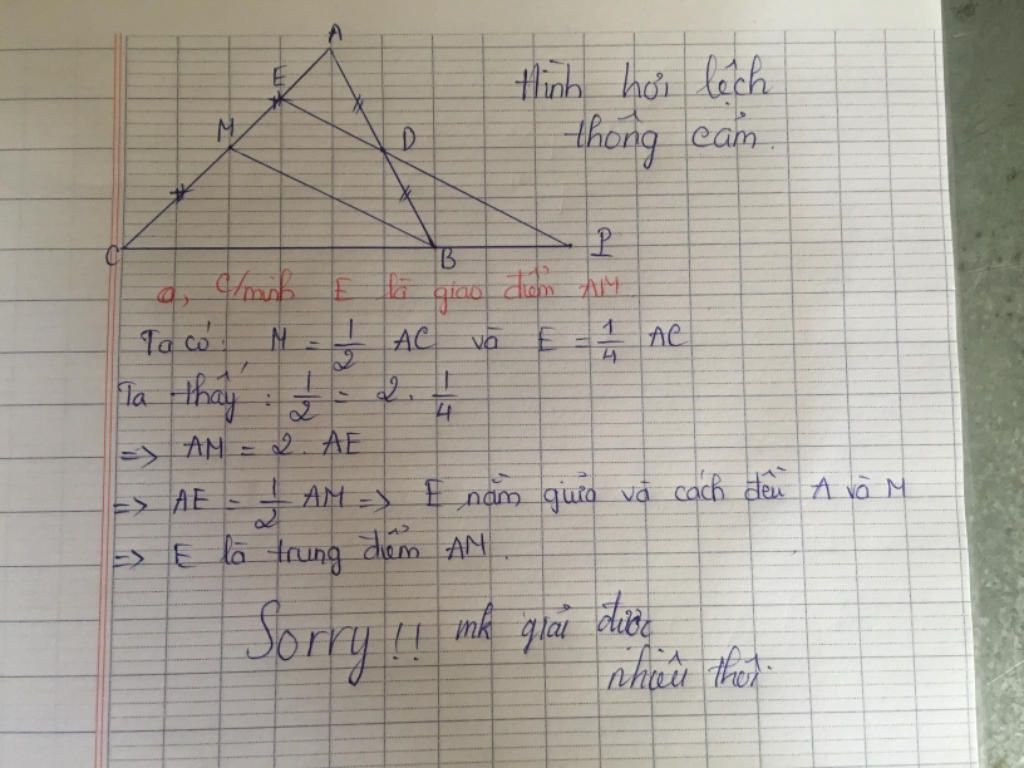 A
E
M
D
C
B
I
Hình hơi lệch
thông cảm.
a, C/minh E là giao điểm AM
Ta có: M = 1/2 AC và E = 1/4 AC
Ta thấy: 1/2 = 2. 1/4
=> AM = 2. AE
=> AE = 1/2 AM => E nằm giữa và cách đều A và M
=> E là trung điểm AM.
Sorry!! mk giải được
nhiêu thôi.